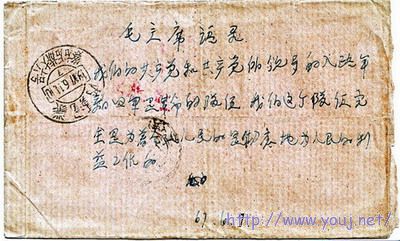 毛主席语录
我们的共产党和共产党的领导的八路军
新四军是革命的队伍 我们这个队伍完
全是为着 人民的 地为人民的利
益工作的
67.6.
http://www.youj.net/